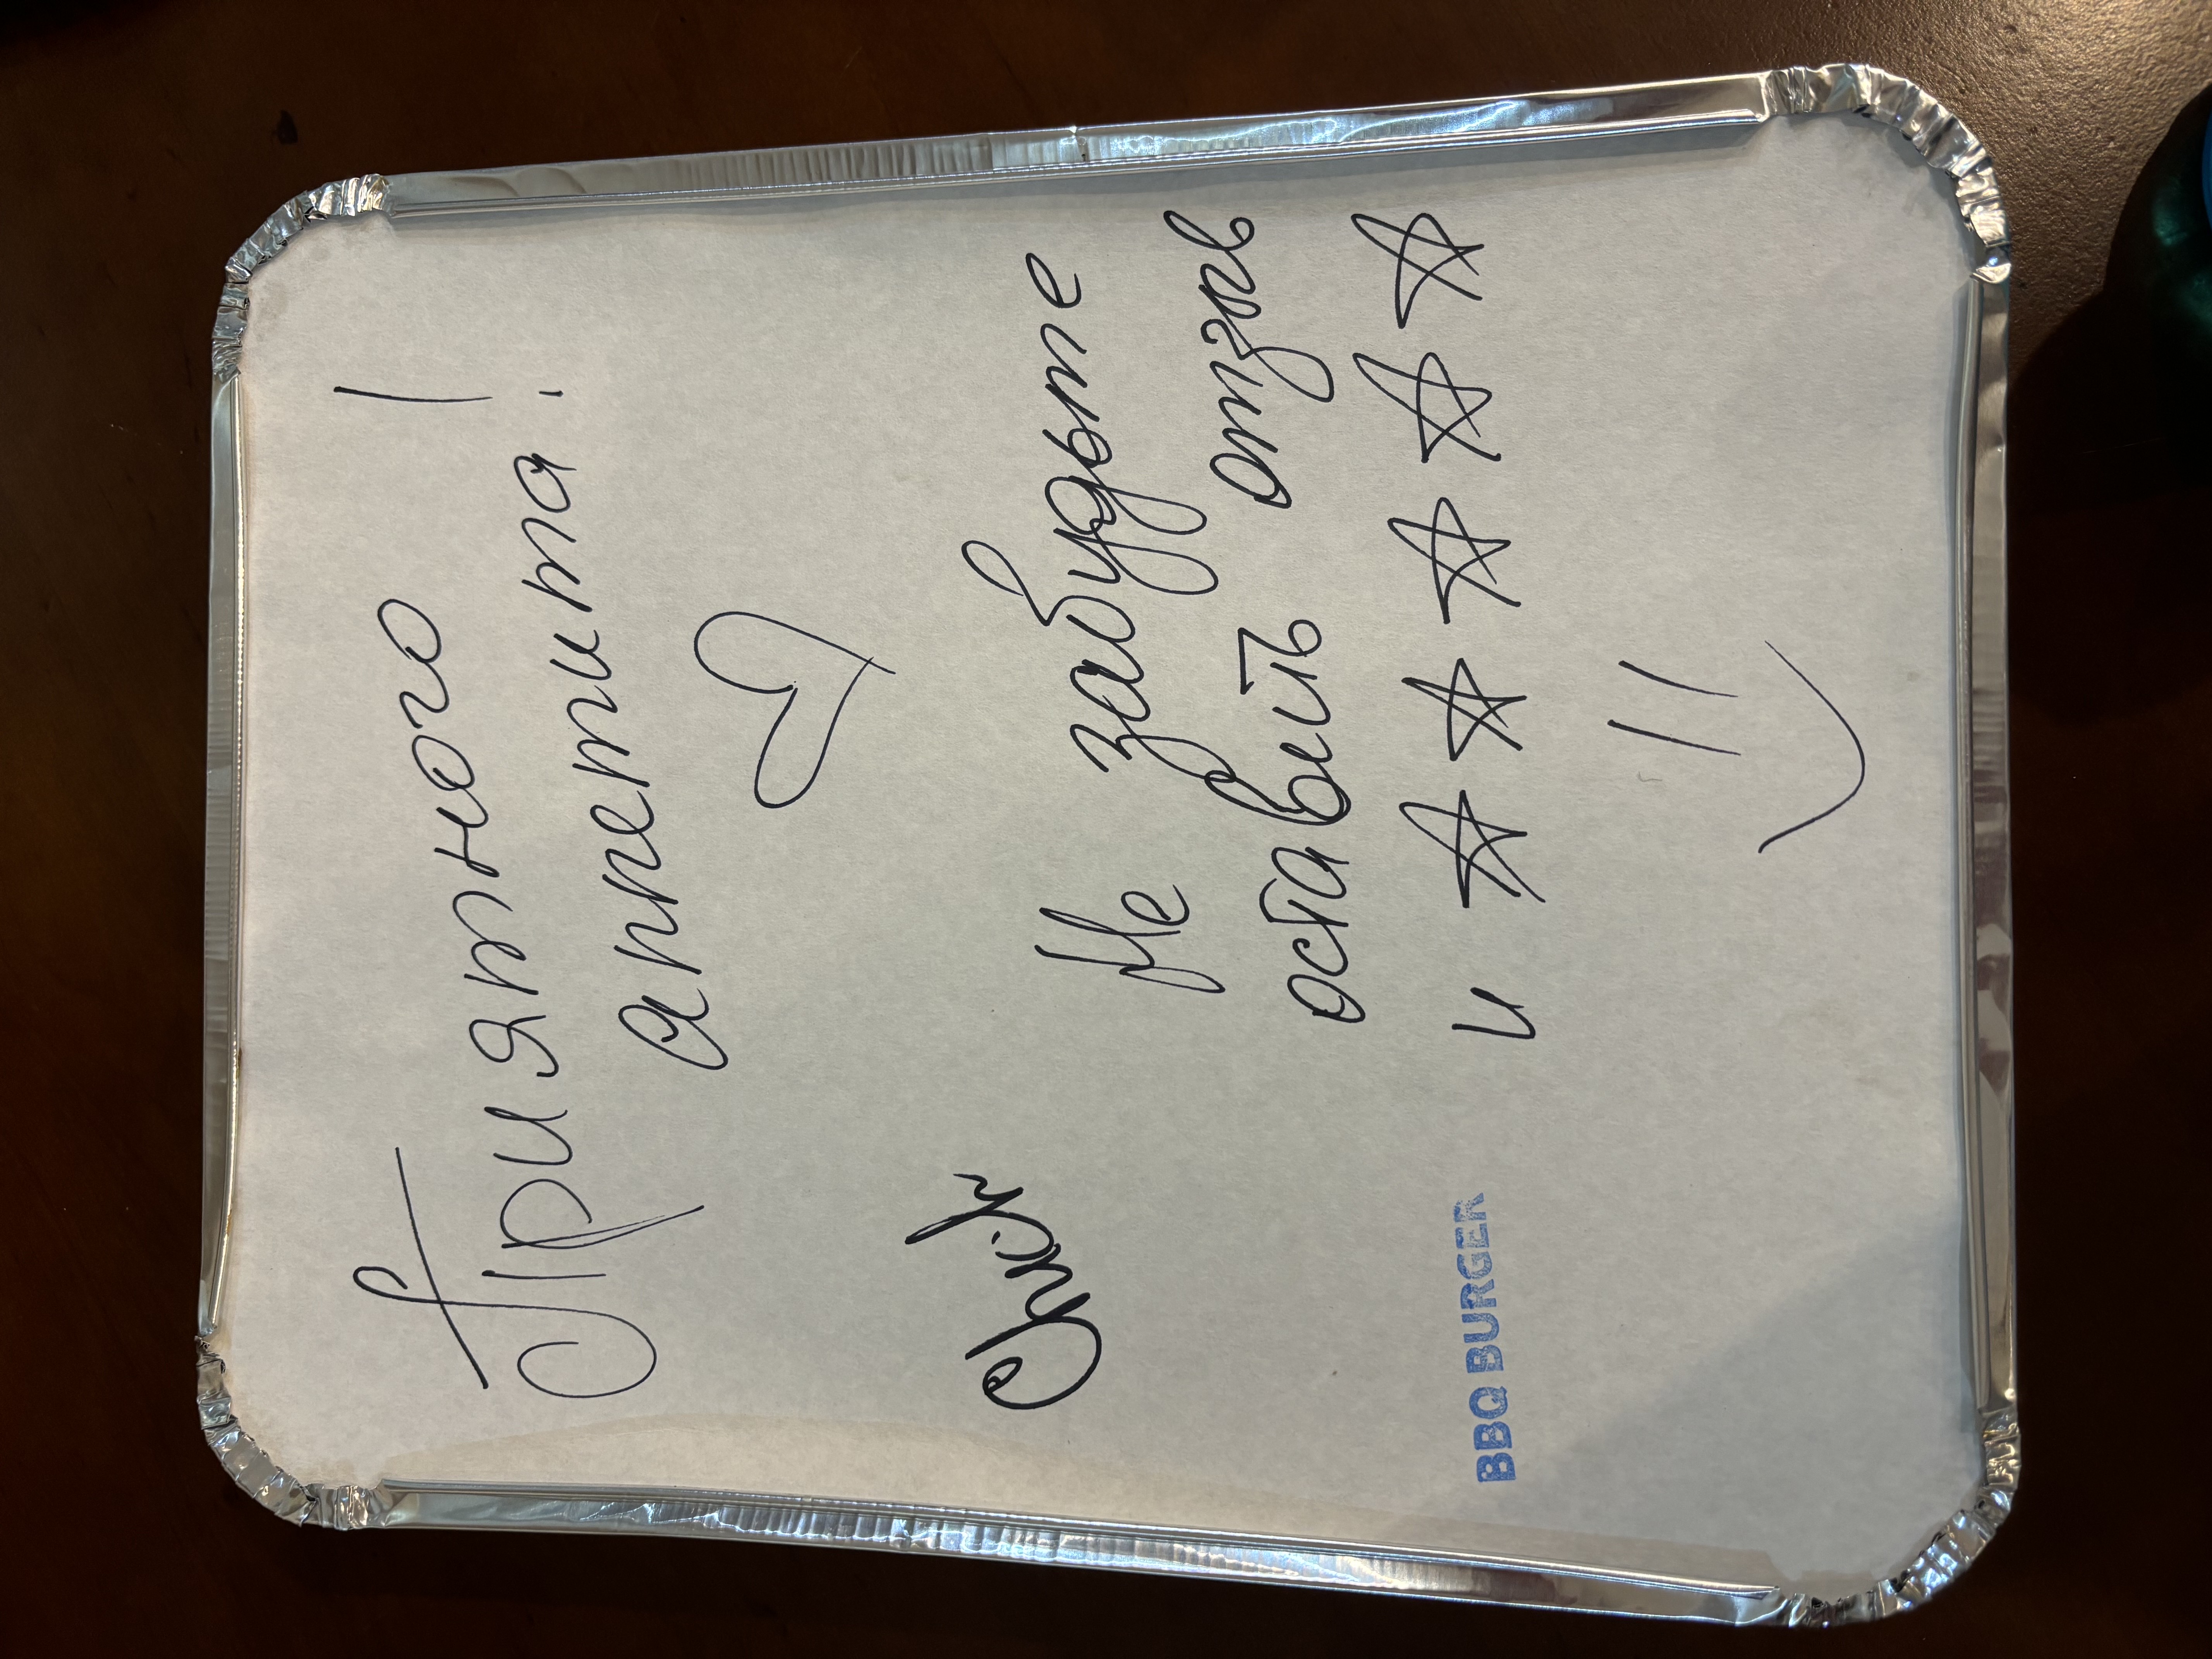 Приятного
аппетита!
♡
Chick
Не забудьте
оставить отзыв
и ☆☆☆☆☆
BBQ BURGER